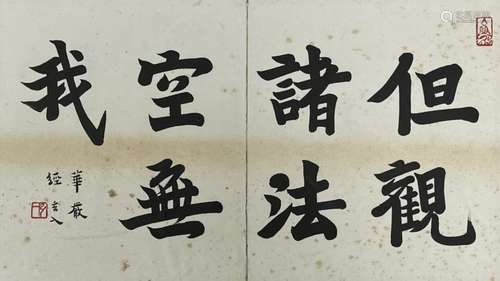 但觀
諸法
空無
我
華嚴
經句